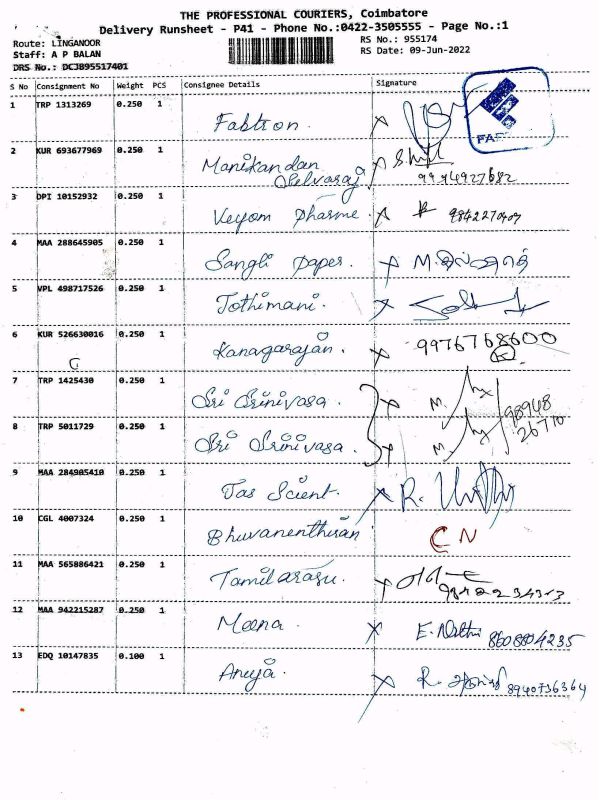 THE PROFESSIONAL COURIERS, Coimbatore
Delivery Runsheet - P41 - Phone No.:0422-3505555 - Page No.:1
Route: LINGANOOR RS No.: 955174
Staff: A P BALAN RS Date: 09-Jun-2022
DRS No.: DCJB95517401
S No Consignment No Weight PCS Consignee Details Signature
1 TRP 1313269 0.250 1 Fabtron. X
2 KUR 693677969 0.250 1 Manikandan Selvaraj X
3 DPI 10152932 0.250 1 Veyom Pharme. X
4 MAA 288645905 0.250 1 Sangli paper. X M.
5 VPL 498717526 0.250 1 Jothimani. X
6 KUR 526630016 0.250 1 Kanagarajan. X 9976768600
7 TRP 1425430 0.250 1 Sri Srinivasa. X M.
8 TRP 5011729 0.250 1 Sri Srinivasa. X M. 98948 26770
9 MAA 284905410 0.250 1 Jas Scient. X R.
10 CGL 4007324 0.250 1 Bhuvanenthiran CN
11 MAA 565886421 0.250 1 Tamilarasu. X
12 MAA 942215287 0.250 1 Meena. X E. 8608804235
13 EDQ 10147835 0.100 1 Anuja. X R. 8940736364